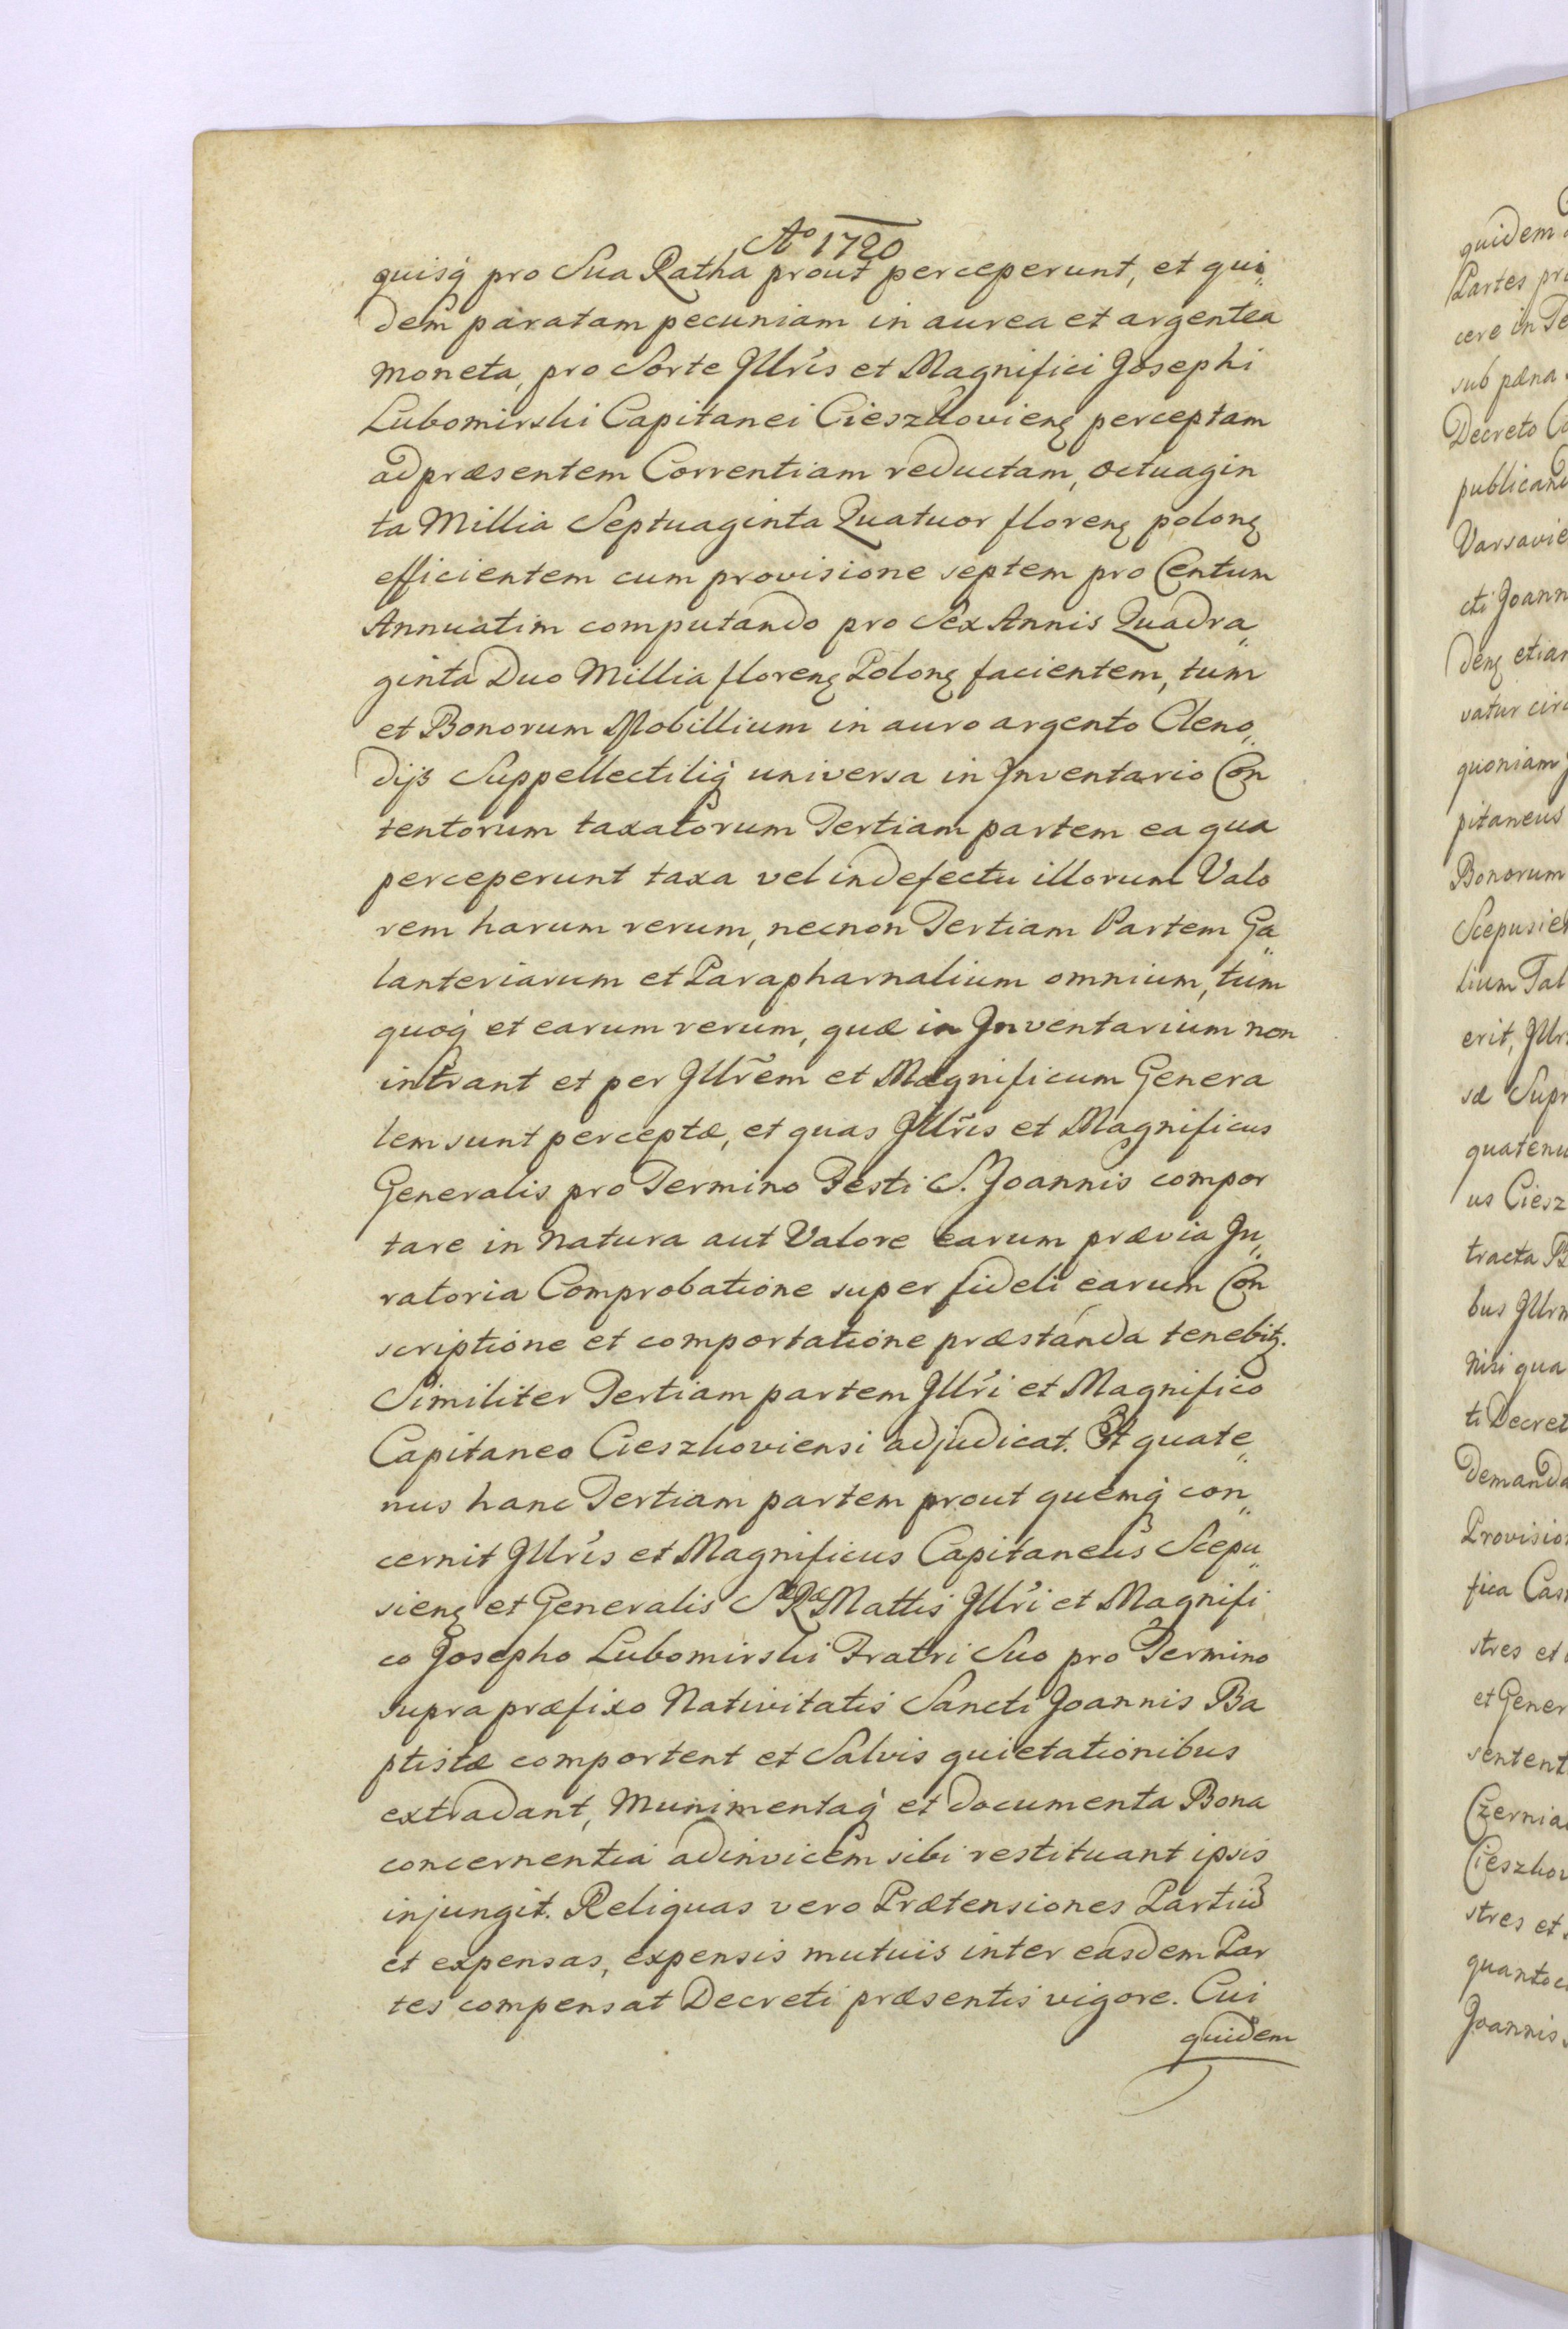 Aº 1720
quisq́ pro Sua Ratha prout perceperunt, et qui„
dem paratam pecuniam in aurea et argentea
moneta, pro Sorte Jllris et Magnifici Josephi
Lubomirski Capitanei Cieszkovienȝ perceptam
ad præsentem Correntiam reductam, octuagin
ta Millia Septuaginta Quatuor florenȝ polonȝ
efficientem cum provisione septem pro Centum
Annuatim computando pro Sex Annis Quadra„
ginta Duo Millia florenȝ Polonȝ facientem, tum
et Bonorum Mobillium in auro argento Cleno„
dijs Suppellectiliq́ universa in Jnventario Con
tentorum taxatorum Tertiam partem ea qua
perceperunt taxa vel in defectu illorum Valo
rem harum rerum, necnon Tertiam Partem Ga„
lanteriarum et Parapharnalium omnium, tum
quoq́ et earum rerum, quæ in Jnventarium non
intrant et per Jllr̃em et Magnificum Genera
lem sunt perceptæ, et quas Jllr̃is et Magnificus
Generalis pro Termino Festi S. Joannis compor
tare in natura aut Valore earum prævia Ju„
ratoria Comprobatione super fideli earum Con
scriptione et comportatione præstanda tenebitȝ.
Similiter Tertiam partem Jllri et Magnifico
Capitaneo Cieszkoviensi adjudicat. Et quate„
nus hanc Tertiam partem prout quemq́ con„
cernit Jllris et Magnificus Capitaneus Scepu„
sienȝ et Generalis Sæ Ræ Mattis Jllri et Magnifi
co Josepho Lubomirski Fratri Suo pro Termino
supra præfixo Nativitatis Sancti Joannis Ba
ptistæ comportent et Salvis quietationibus
extradant, Munimentaq́ et documenta Bona
concernentia adinvicem sibi restituant ipsis
injungit. Reliquas vero Prætensiones Partiu̅
et expensas, expensis mutuis inter easdem Par
tes compensat Decreti præsentis vigore. Cui
quidem
quidem
Partes
cere in
sub pæna
Decreto
Varsavie
cti Joann
denȝ etia
vatur
quoniam
pitaneus
Bonorum
Scepusie
lium Tal
erit, Jllr
sæ Supr
quatenu
us Ciesz
tracta
bus Jllrm
nisi qua
ti Decret
Demanda
Provisio
fica Cas
stres et
et Gener
sentent
Czernia
Cieszkov
stres et
quantoc
Joannis